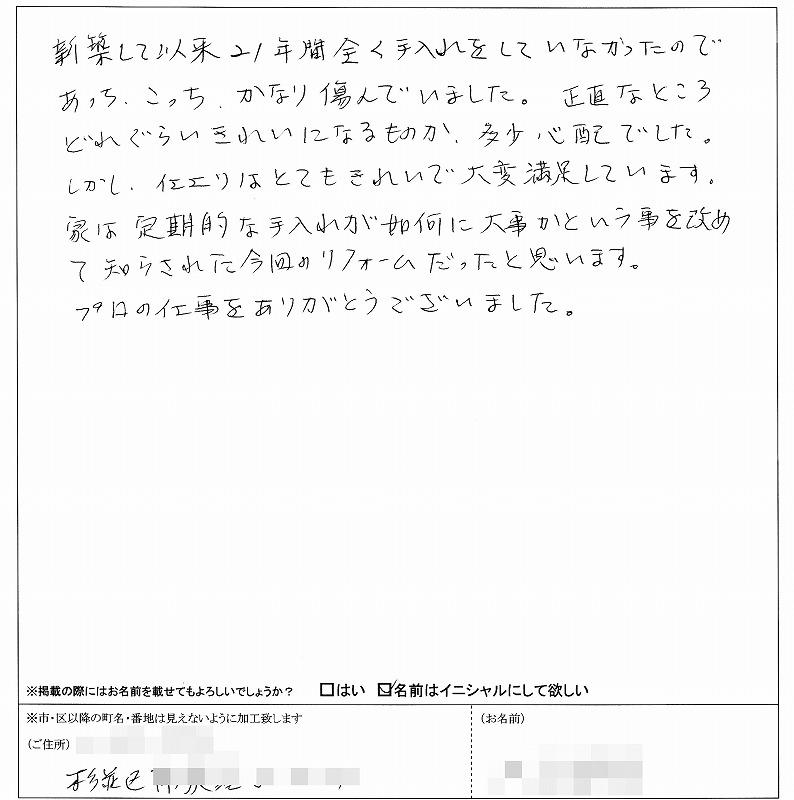 新築して以来21年間全く手入れをしていなかったので
あっち、こっち、かなり傷んでいました。正直なところ
どれぐらいきれいになるものか、多少心配でした。
しかし、仕上りはとてもきれいで大変満足しています。
家は定期的な手入れが如何に大事かという事を改め
て知らされた今回のリフォームだったと思います。
プロの仕事をありがとうございました。
※掲載の際にはお名前を載せてもよろしいでしょうか？ □はい ☑名前はイニシャルにして欲しい
※市・区以降の町名・番地は見えないように加工致します
(ご住所)
杉並区
(お名前)